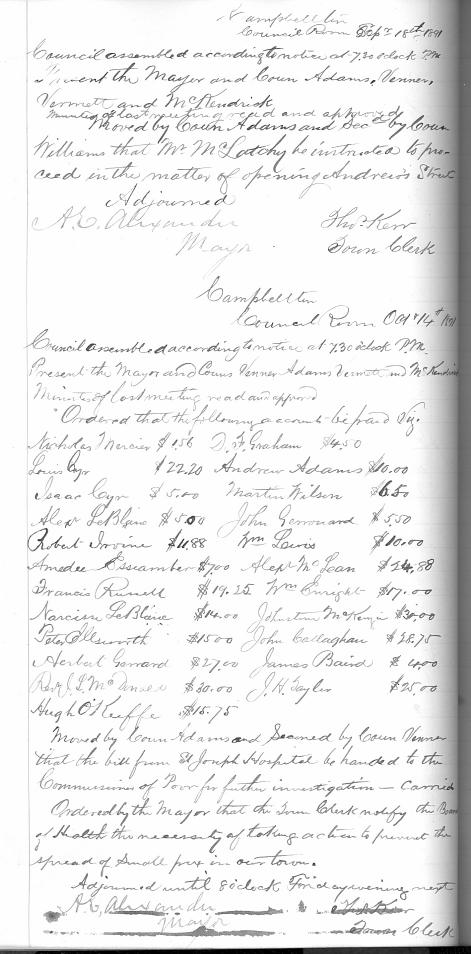 Campbellton
Council Room Sept 18th 1891
Council assembled according to notice at 7.30 oclock P.M.
Present the Mayor and Coun Adams, Venner,
Vermett and McKendrick
minutes of last meeting read and approved
Moved by Coun Adams and Secd by Coun
Williams that Mr McLatchy be instructed to pro-
ceed in the matter of opening Andrew's Street
Adjourned
A.E. Alexander Thos Kerr
Mayor Town Clerk
Campbellton
Council Room Oct 14th 1891
Council assembled according to notice at 7.30 oclock P.M.
Present the Mayor and Couns Venner Adams Vermett and McKendrick
Minutes of last meeting read and approvd
Ordered that the following accounts be paid Viz.
Nicholas Mercier $1.56 D. F. Graham $4.50
Louis Cyr $22.20 Andrew Adams $10.00
Isaac Cyr $5.00 Martin Wilson $6.50
Alex LeBlanc $5.00 John Gerrouard $5.50
Robert Irvine $11.88 Wm Lewis $10.00
Amedee $7.00 Alex McLean $24.88
Francis Russell $19.25 Wm Enright $17.00
Narcisse LeBlanc $14.00 Johnston McKenzie $30.00
Peter Ellsworth $15.00 John Callaghan $28.75
Herbert Gerrard $27.00 James Baird $4.00
Rev J. L. $30.00 J. H. Taylor $25.00
Hugh O'Keeffe $15.75
Moved by Coun Adams and Seconed by Coun Venner
that the bill from St Joseph Hospital be handed to the
Commissioner of Poor for futher investigation - carried
Ordered by the Mayor that the Town Clerk notify the Board
of Health the necessity of taking action to prevent the
spread of Small pox in our town.
Adjourned until 8 oclock Friday evening next
A.E. Alexander Thos Kerr
Mayor Town Clerk